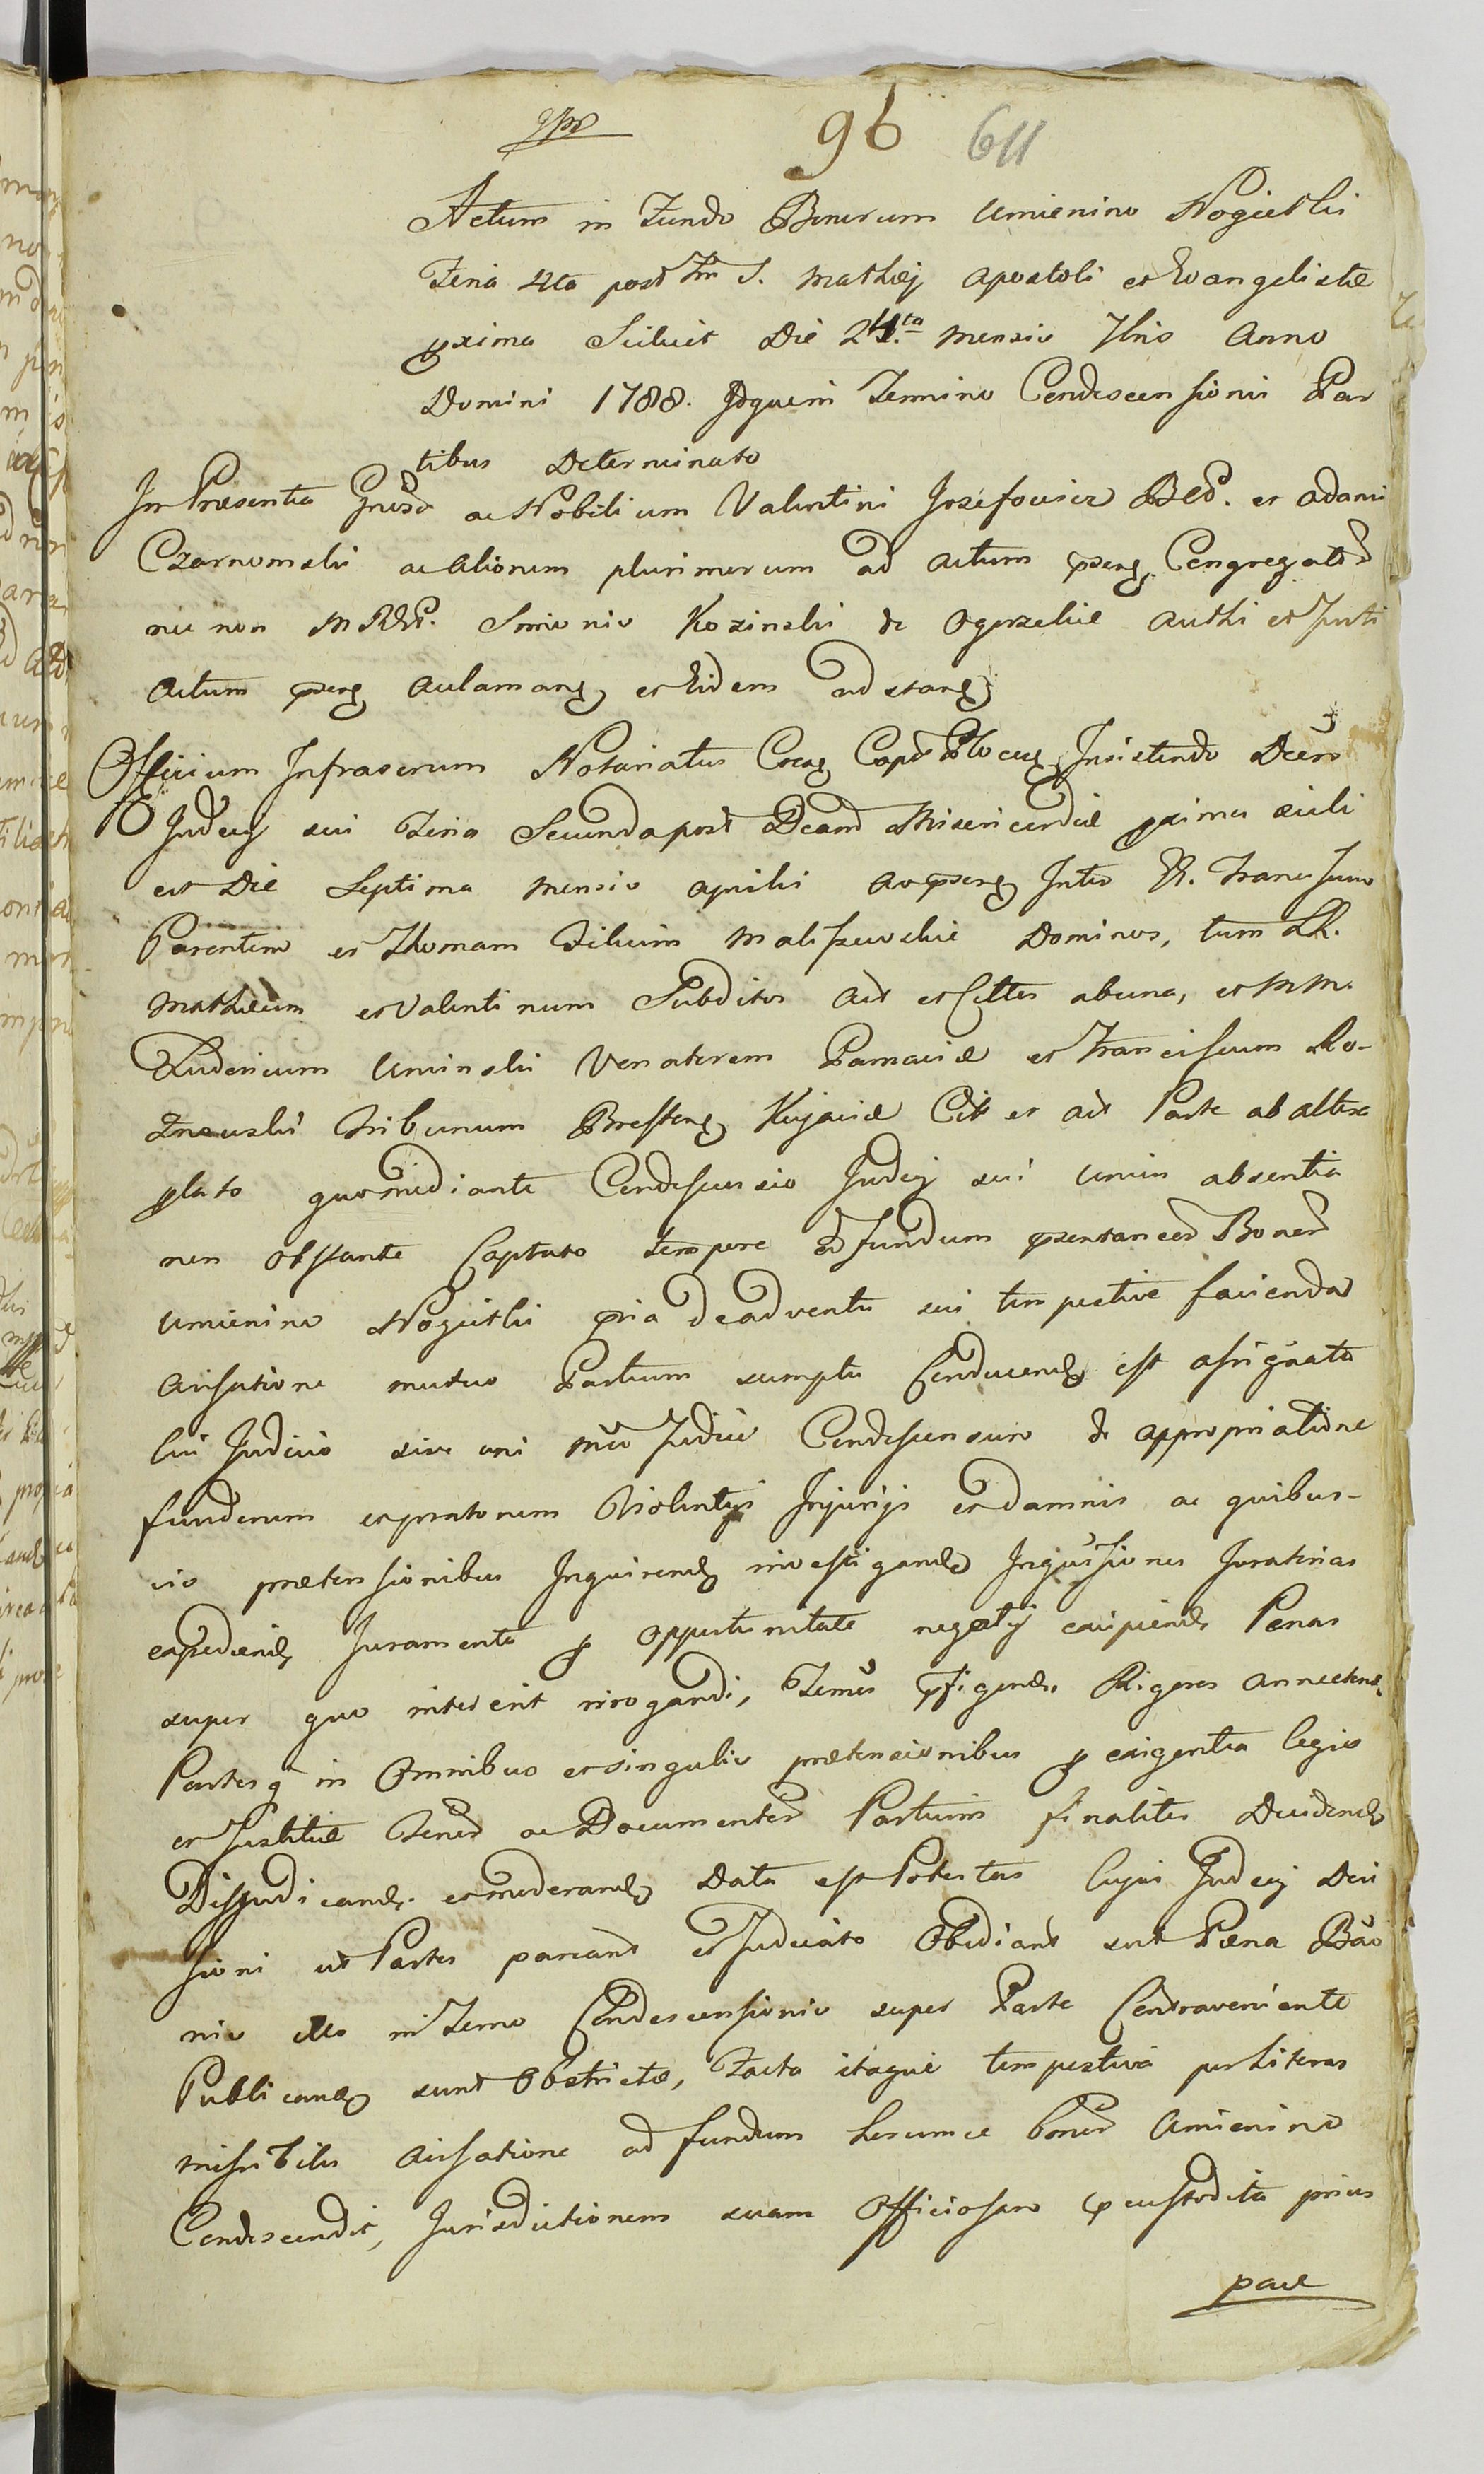 96 611
Actum in Fundo Bonorum Umienino Nogietki
Feria 4ta post Fm S. Mathæj Apostoli et Evangelistæ
pxima Scilicet Die 24ta Mensis 7bris Anno
Domini 1788. Idqueiu Termino Condescensionis Par
tibus Determinato
In Præsentia Grosd ac Nobilium Valentini Jozefowicz et Adami
Czarnomski ac Aliorum plurimorum ad Actum pseng Congregator
nec non Simonis Kozinski de Ogorzelice Authi et Jurti
Actum pseng Aclamang et Eidem adstang
Officium Infrascrum Notariatus Creag Capd Ploceng Insistendo Decro
Judcij sui Feria Secunda post Dcam Misericordiæ pxima scili
cet Die Septima Mensis Aprilis Ao pseng Inter Franciscum
Parentem et Thomam Filium Maliszewskie Dominos, tum LL.
Mathæum et Valentinum Subditos Act et Citten ab una, et MM.
Ludovicum Uminski Venatorem et Franciscum Ro-
Tribunum Bresteng Kujaviæ Citt et Act Parte ab altera
plato quo mediante Condescensio Judcij sui Unius absentia
non obstante Captato tempore ad fundum Bonor
Umienino Nogietki pvia de adventu sui tempestive facienda
Avisatione mutuo Partium sumptu Conducend est assignata
Cui Judicio sive uni Judici Condescensuro de appropriatione
fundorum et pratorum Violentijs Injurijs et damnis ac quibus-
vis prætensionibus Inquirend investigand Inquisitiones Juratorias
expediend Juramenta p opportunitate negotij excipiend Pœnas
super quo intererit irrogandi, Termos pfigend. Rigores annectend.
Partesq in Omnibus et singulis prætensionibus p exigentia legis
et Justitiæ Tenor ac Documentor Partium finaliter Decidend
Dijudicand. et moderand Data est Potestas Cujus Judcij Deci
sioni ut Partes pareant et Judicato Obediant sub Pœna Ban
nis in Termo Condescensionis super Parte Contraveniente
Publicand sunt Obstrictæ, Facta itaque tempestiva per Literas
missibiles Avisatione ad fundum horumce bonor Umienino
Condescendit, Jurisdictionem suam Officiosam p custodita prius
pace